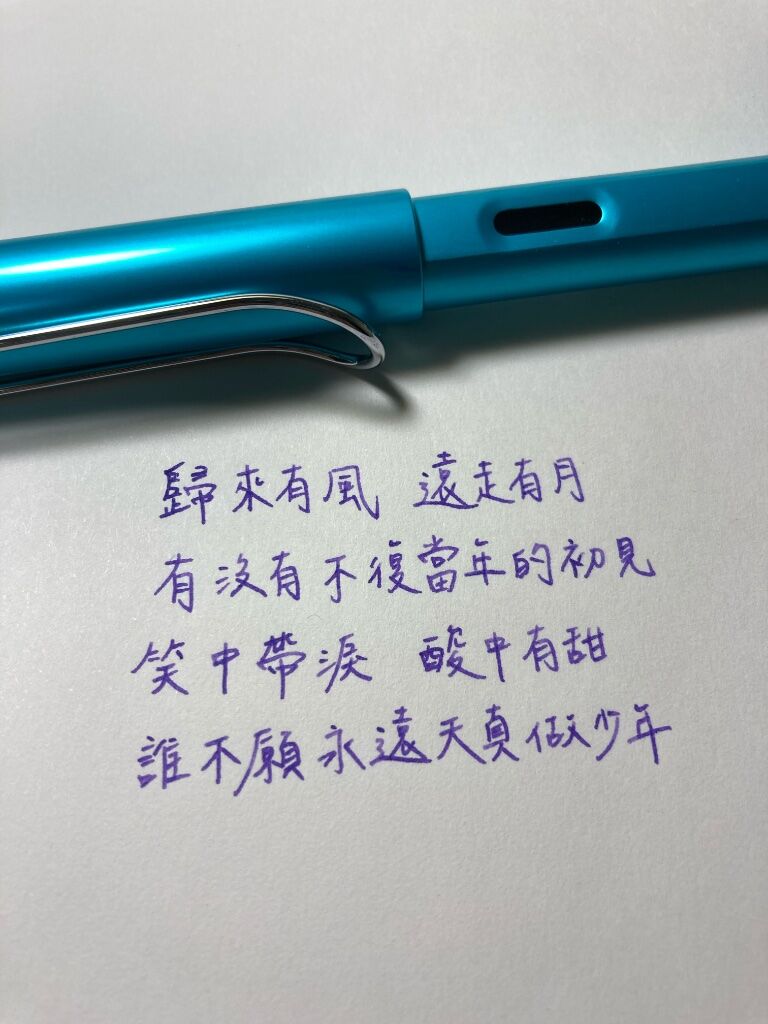 歸來有風 遠走有月
有沒有不復當年的初見
笑中帶淚 酸中有甜
誰不願永遠天真做少年